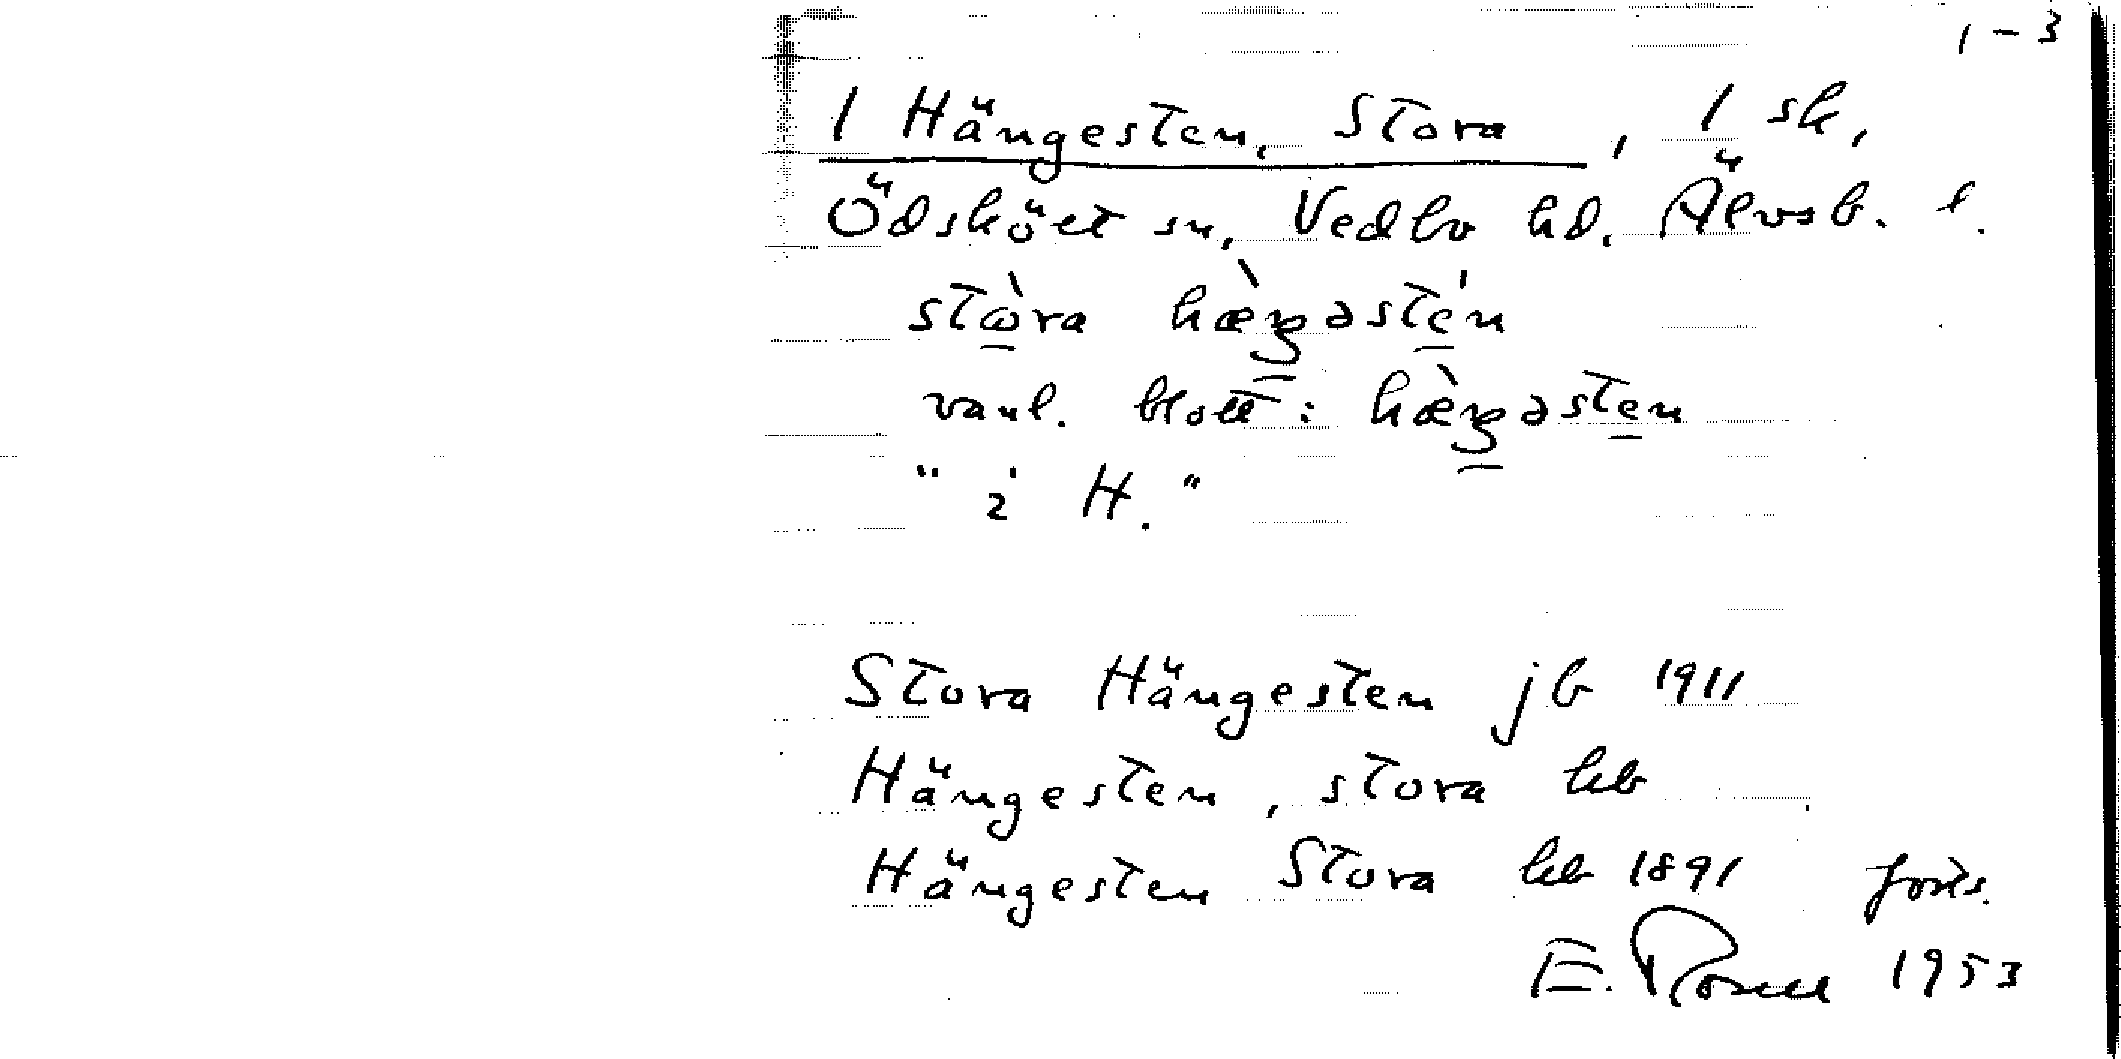 1-3
1 Hängesten, Stora, 1 sk,
Ödskölt sn, Vedbo hd. Älvsb. l.
vanl. blott:
"i H."
Stora Hängesten jb 1911
Hängesten, stora hb
Hängesten Stora hb 1891 forts.
E. Rosell 1953